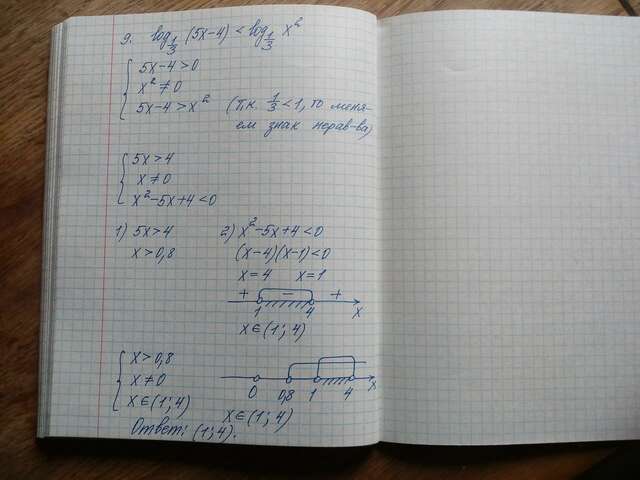 9. log_{1/3} (5x-4) < log_{1/3} x²
5x-4>0
x²≠0
5x-4>x² (т.к. 1/3<1, то меня-
ем знак нерав-ва)
5x>4
x≠0
x²-5x+4<0
1) 5x>4
x>0,8
2) x²-5x+4<0
(x-4)(x-1)<0
x=4 x=1
+ - +
1 4 x
x∈(1;4)
x>0,8
x≠0
x∈(1;4)
0 0,8 1 4 x
x∈(1;4)
Ответ: (1;4).